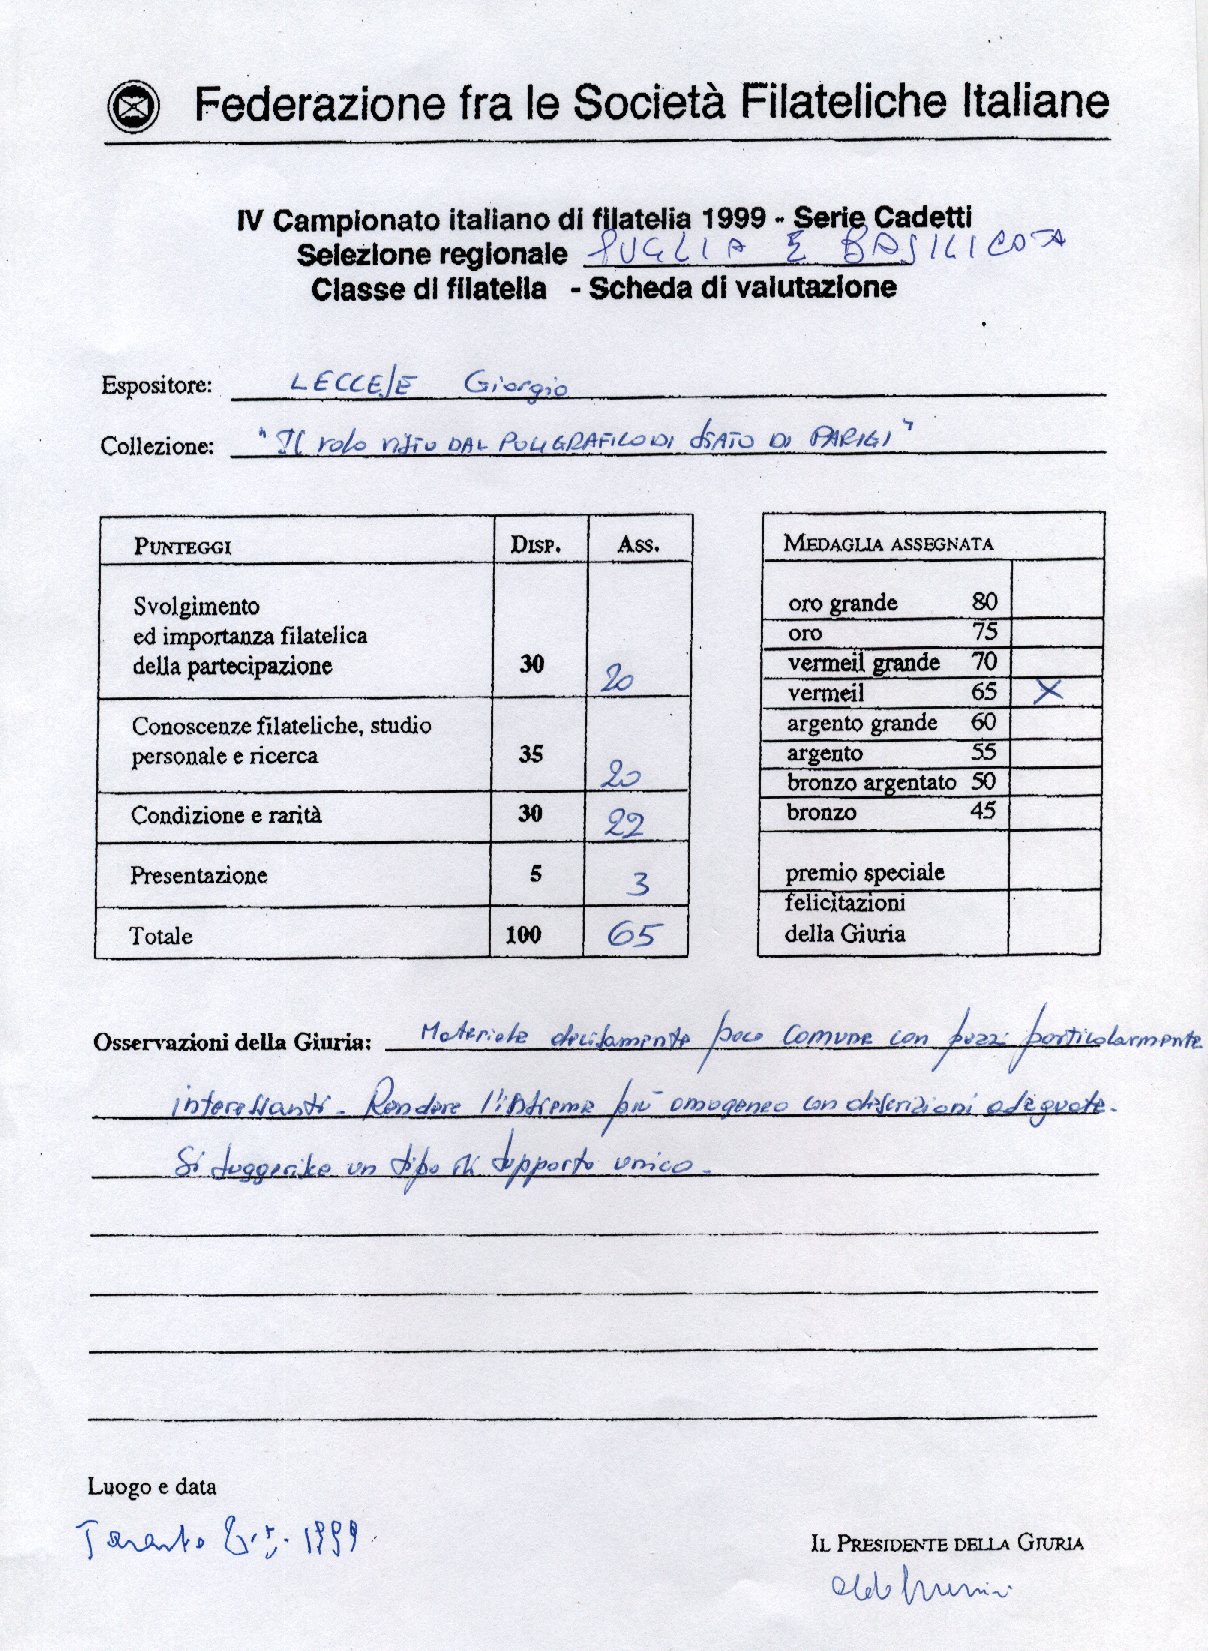 Federazione fra le Società Filateliche Italiane
IV Campionato italiano di filatelia 1999 - Serie Cadetti
Selezione regionale PUGLIA E BASILICATA
Classe di filatelia - Scheda di valutazione
Espositore: LECCESE Giorgio
Collezione: "Il volo visto DAL POLIGRAFICO DI STATO DI PARIGI"
PUNTEGGI DISP. ASS.
Svolgimento
ed importanza filatelica
della partecipazione 30 20
Conoscenze filateliche, studio
personale e ricerca 35 20
Condizione e rarità 30 22
Presentazione 5 3
Totale 100 65
MEDAGLIA ASSEGNATA
oro grande 80
oro 75
vermeil grande 70
vermeil 65 X
argento grande 60
argento 55
bronzo argentato 50
bronzo 45
premio speciale
felicitazioni
della Giuria
Osservazioni della Giuria: Materiale decisamente poco comune con pezzi particolarmente
interessanti. Rendere l'insieme più omogeneo con descrizioni adeguate.
Si suggerisce un tipo di supporto unico.
Luogo e data
Taranto 1999
IL PRESIDENTE DELLA GIURIA